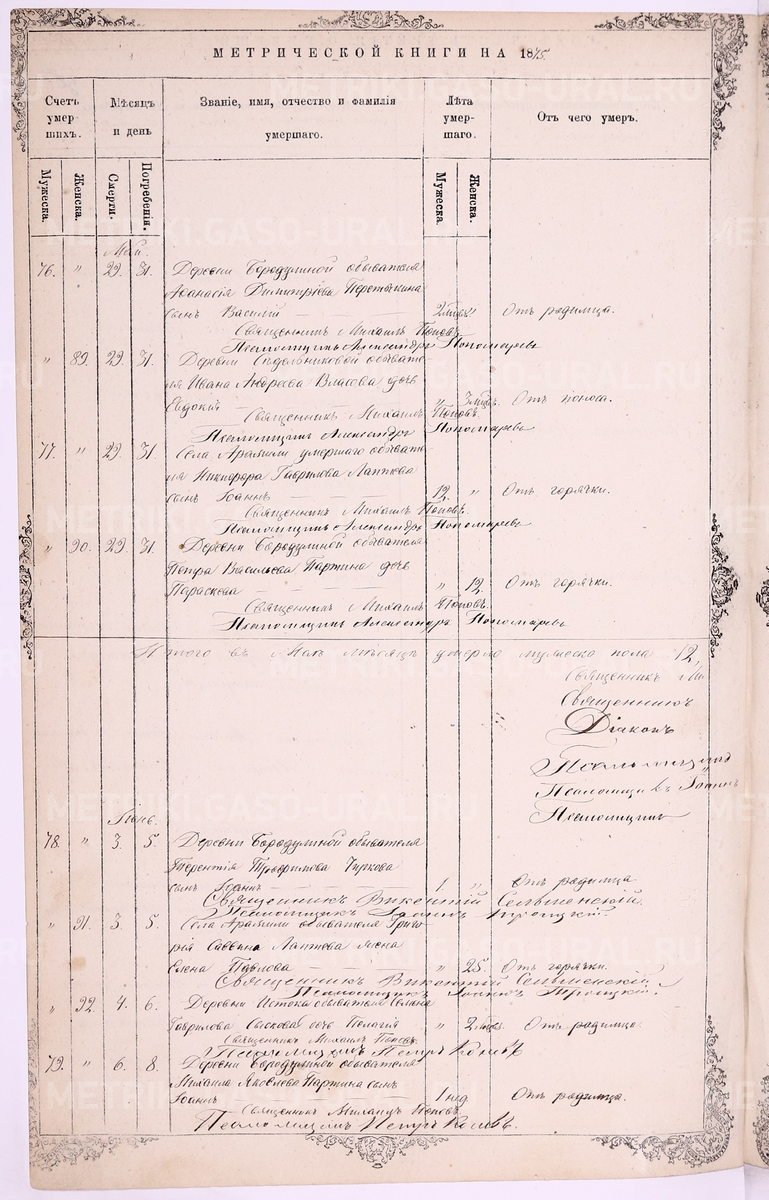 МЕТРИЧЕСКОЙ КНИГИ НА 1875.
Счетъ умершихъ.
Мѣсяцъ и день
Званіе, имя, отчество и фамилія умершаго.
Лѣта умершаго.
Отъ чего умеръ.
Мужеска.
Женска.
Смерти.
Погребенія.
Мужеска
Женска.
Май.
76. " 29. 31. Деревни Бородулиной обывателя
Аѳанасія Димитріева Перетыкина
сынъ Василій 2 " Отъ родимца.
Священникъ Михаилъ Поповъ
Псаломщикъ Александръ Пономаревъ
" 89. 29. 31. Деревни Седельниковой обывате-
ля Ивана Андреева Власова дочь
Евдокія " 3 Отъ поноса.
Священникъ Михаилъ Поповъ.
Псаломщикъ Александръ Пономаревъ
77. " 29 31. Села Арамили умершаго обывате-
ля Никифора Гаврилова Лаптева
сынъ Іоаннъ 12. " Отъ горячки.
Священникъ Михаилъ Поповъ.
Псаломщикъ Александръ Пономаревъ
" 90. 29 31. Деревни Бородулиной обывателя
Петра Васильева Партина дочь
Параскева " 12. Отъ горячки.
Священникъ Михаилъ Поповъ.
Псаломщикъ Александръ Пономаревъ
Итого въ Маѣ мѣсяцѣ умерло мужеска пола 12,
Священникъ Ми
Священникъ
Діаконъ
Псаломщик
Псаломщикъ Іоаннъ
Псаломщикъ
Іюнь.
78. " 3. 5. Деревни Бородулиной обывателя
Терентія Трофимова Чиркова
сынъ Іоаннъ 1. " Отъ родимца
Священникъ Викентій Сельменскій.
Псаломщикъ Іоаннъ Троицкій.
" 91. 3. 5. Села Арамили обывателя Григо-
рія Саввина Лаптева жена
Елена Павлова " 25. Отъ горячки.
Священникъ Викентій Сельменскій
Псаломщикъ Іоаннъ Троицкій.
" 92. 4. 6. Деревни Истока обывателя
Гаврилова дочь Пелагія " 2 Отъ родимца.
Священникъ Михаилъ Поповъ.
Псаломщикъ Петръ
79. " 6. 8. Деревни Бородулиной обывателя
Михаила Яковлева Партина сынъ
Іоаннъ 1 нед Отъ родимца.
Священникъ Михаилъ Поповъ
Псаломщикъ Петръ
METRIKI.GASO-URAL.RU